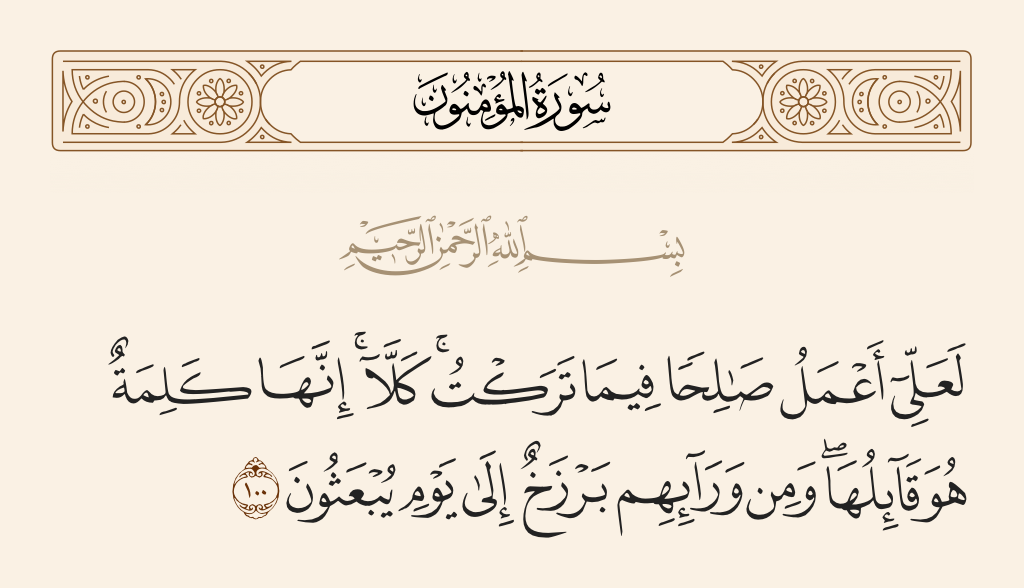 سُورَةُ المُؤْمِنُونَ
بِسْمِ ٱللَّهِ ٱلرَّحْمَٰنِ ٱلرَّحِيمِ
لَعَلِّىٓ أَعْمَلُ صَٰلِحًا فِيمَا تَرَكْتُ ۚ كَلَّآ ۚ إِنَّهَا كَلِمَةٌ
هُوَ قَآئِلُهَا ۖ وَمِن وَرَآئِهِم بَرْزَخٌ إِلَىٰ يَوْمِ يُبْعَثُونَ ١٠٠